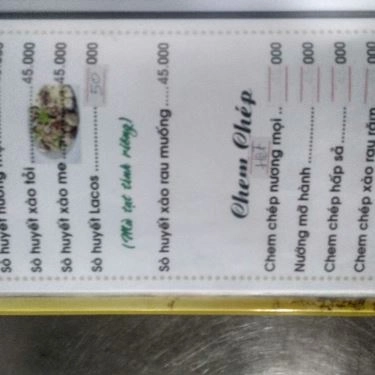 Sò huyết nướng
Sò huyết xào tỏi ........ 45.000
Sò huyết xào me ........ 45.000
Sò huyết Lacos ........ 50 000
(Mù tạt tính riêng)
Sò huyết xào rau muống ..... 45.000
Chem Chép
HẾT
Chem chép nướng mọi .. 000
Nướng mỡ hành ........ 000
Chem chép hấp sả ........ 000
Chem chép xào rau răm 000